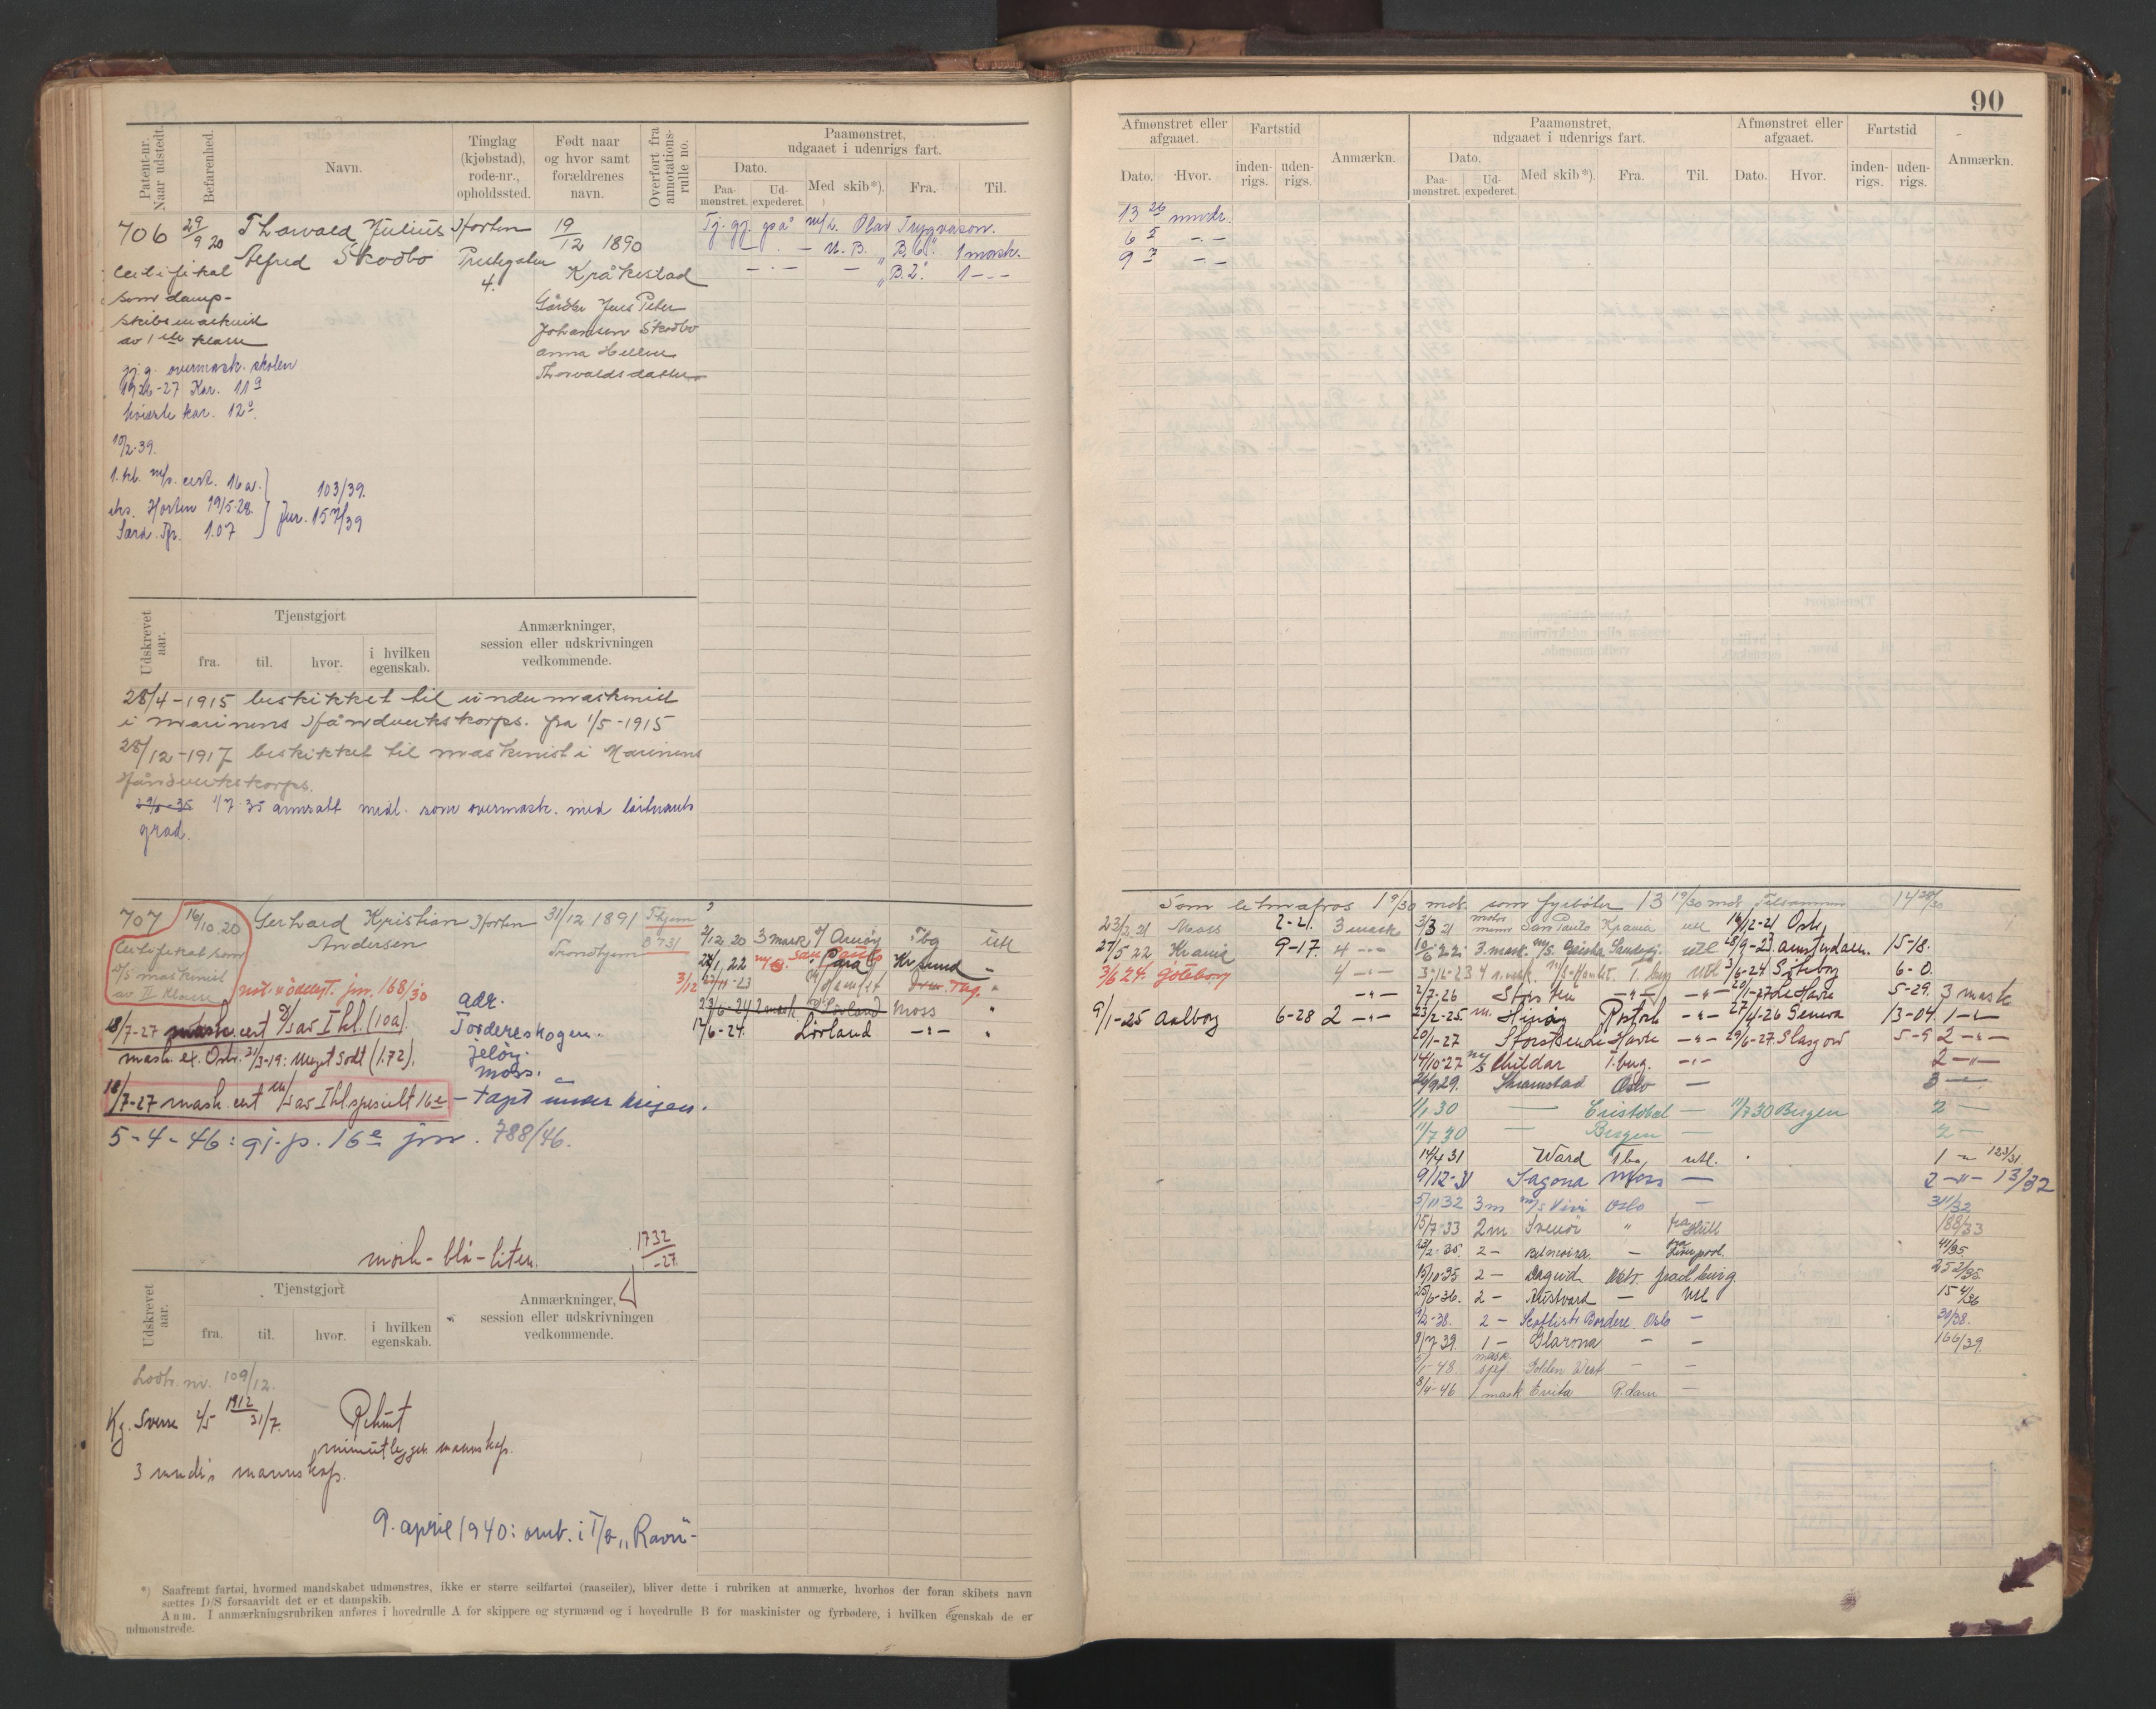 90
Patent-nr. Naar udstedt.
Befarenhed.
Navn.
Tinglag (kjøbstad), rode-nr., opholdssted.
Født naar og hvor samt forældrenes navn.
Overført fra annotations-rulle no.
Paamønstret, udgaaet i udenrigs fart.
Dato.
Paa-mønstret.
Ud-expederet.
Med skib*).
Fra.
Til.
706 29/9 20 Thorvald Julius Horten 19/12 1890
Alfred Skodbo Prestegaten 4. Kråkestad
Certifikat
som damp-
skibsmaskinist
av 1ste klasse
Gårdbr. Jens Peter
Johansen Skodbo
Anna Helene
Thorvaldsdatter
gj.g. overmask. skolen
1926-27 Kar. 11
høieste kar. 12
10/2-39.
1. kl. m/s. cert. 16 a.
eks. Horten 19/5-28.
103/39.
Jnr. 157/39
1.07
Tj. gj. på m/k. Olav Trygvason.
— . — U. B. „B.6". 1 mask.
— . — — „B.2". 1 - . -
Udskrevet aar.
Tjenstgjort
fra.
til.
hvor.
i hvilken egenskab.
Anmærkninger, session eller udskrivningen vedkommende.
28/4-1915 beskikket til undermaskinist
i marinens Håndverkskorps. fra 1/5-1915
28/12-1917 beskikket til maskinist i Marinens
Håndverkskorps.
1/7 35 ansatt midl. som overmask. med løitnants
grad.
707 16/10.20 Gerhard Kristian Horten 31/12 1891 Thjem
Andersen Trondhjem B 731
Certifikat som
D/S maskinist
av II Klasse
jnr. 168/30
18/7-27 mask. cert D/S av I kl. (10a).
mask. ex. Oslo 21/3-19: Meget Godt (1.72).
18/7-27 mask. cert m/s av I kl spesielt 16e — tapt under krigen.
5-4-46: gj.p. 16e jnr. 788/46.
adr.
Tordereskogen.
Jeløy.
Moss.
mørk-blå-liten.
1732/-27
2/12 20 3 mask Tbg utl
San Paulo
22/1 22 Para Kr.sund -
3/12 11-23 Tbg.
23/6-24 2 mask Sørland Moss
17/6-24. Sörland -"-
Udskrevet aar.
Tjenstgjort
fra.
til.
hvor.
i hvilken egenskab.
Anmærkninger, session eller udskrivningen vedkommende.
Lodtr. nr. 109/12.
Kg. Sverre 2/5 1912 31/7. Rekrut
mineutlegger mannskap.
3 mndr's mannskap.
9. april 1940: omb. i T/B „Ravn"-
*) Saafremt fartøi, hvormed mandskabet udmønstres, ikke er større seilfartøi (raaseiler), bliver dette i rubriken at anmærke, hvorhos der foran skibets navn
sættes D/S forsaavidt det er et dampskib.
Anm. I anmærkningsrubriken anføres i hovedrulle A for skippere og styrmænd og i hovedrulle B for maskinister og fyrbødere, i hvilken egenskab de er
udmønstrede.
Afmønstret eller afgaaet.
Dato.
Hvor.
Fartstid
inden-rigs.
uden-rigs.
Anmærkn.
Paamønstret, udgaaet i udenrigs fart.
Dato.
Paa-mønstret.
Ud-expederet.
Med skib*).
Fra.
Til.
Afmønstret eller afgaaet.
Dato.
Hvor.
Fartstid
inden-rigs.
uden-rigs.
Anmærkn.
13 26 mndr.
6 5 -.-
9 7 -.-
Som letmatros 1 9/30 mdr. som fyrbøter 13 19/30 mdr. Tilsammen 14 28/30
23/2 21 Moss 2-21. 3 mask 3/3 21 San Paulo Krania utl 14/12-21 Oslo
27/5 22 Krania 9-17. 4 -"- 3 mask. M/S 28/9-23 Amsterdam. 15-18.
3/6 24. Göteborg 4 -"- 4 mask. T.berg utl 3/6-24 Göteborg 6-0.
-"- 2/7-26 Storsten -"- -"- 20/1-27 Le Havre 5-29. 3 mask
9/1-25 Aalborg 6-28 2 -"- 23/2-25 Rostock -"- 27/4-26 Genova 13-04. 1 -"-
20/1-27 Storsten Le Havre -"- 29/6-27 Glasgow 5-9 2 -"-
14/10-27 m/s Childar T.berg. -"- 2 -"-
24/9 29. Skramstad Oslo — 3 —
1/1 30 — Cristobal — 11/7 30 Bergen 2 —
11/7 30 — Bergen — 2 —
14/4 31 Ward Tbg utl. 1 - 123/31
9/12-31 Sagona Moss — 2 -"- 13/32
5/11 32 3 m m/s Vivi Oslo — 311/32
15/7-33 2 m Svenör " fra Hull 188/33
23/2-35. 2 - Belmoira - fra Liverpool. 41/35.
15/10-35 2 - Dagrid 252/35.
25/6-36. 2 - Austvard — utl 154/36
9/2-38. 2 - Scottish Bordere Oslo — 30/38.
8/7 39. 1 - Glarona - - 166/39
1-48. mask. sjef Golden West - -
8/4-46 1 mask Evita R.dam —